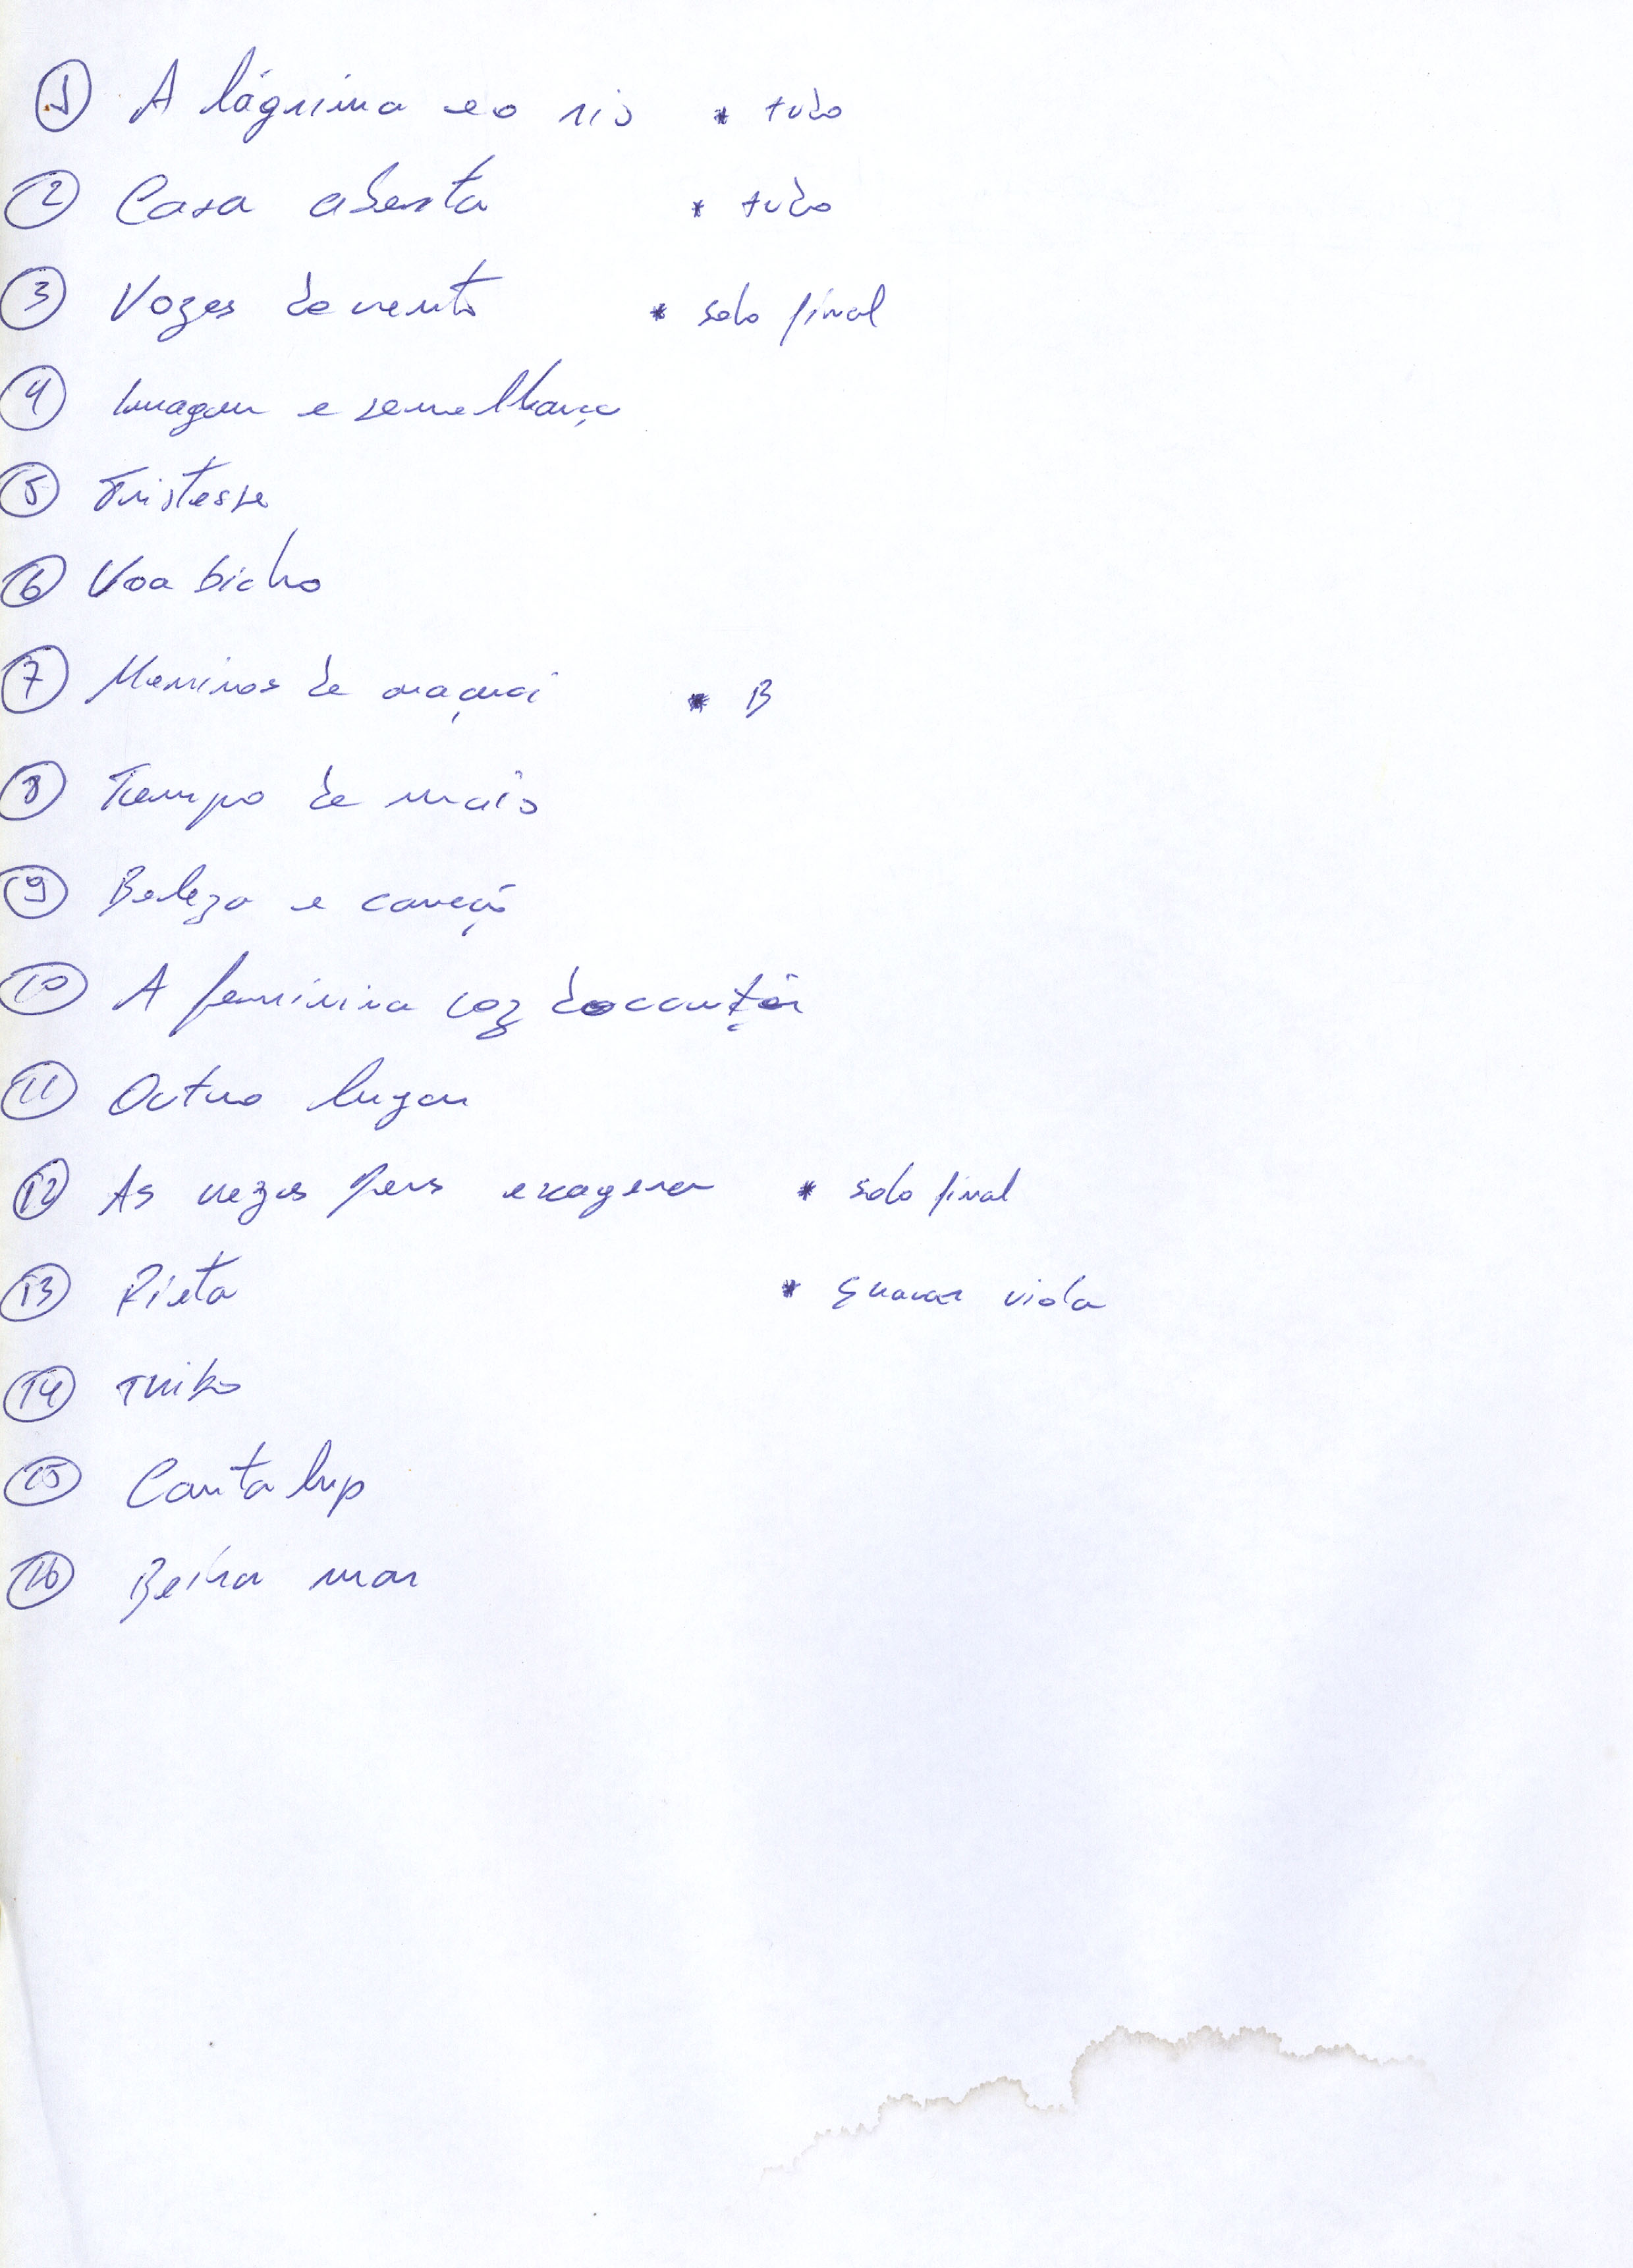 ① A lágrima e o rio * tudo
② Casa aberta * tudo
③ Vozes do vento * solo final
④ Imagem e semelhança
⑤ Tristesse
⑥ Voa bicho
⑦ Meninos de araçuaí * B
⑧ Tempo de mais
⑨ Beleza e canção
⑩ A feminina voz do cantor
⑪ Outro lugar
⑫ As vezes Deus exagera * solo final
⑬ Pietá * gravar viola
⑭ Triko
⑮ Cantalup
⑯ Beira mar